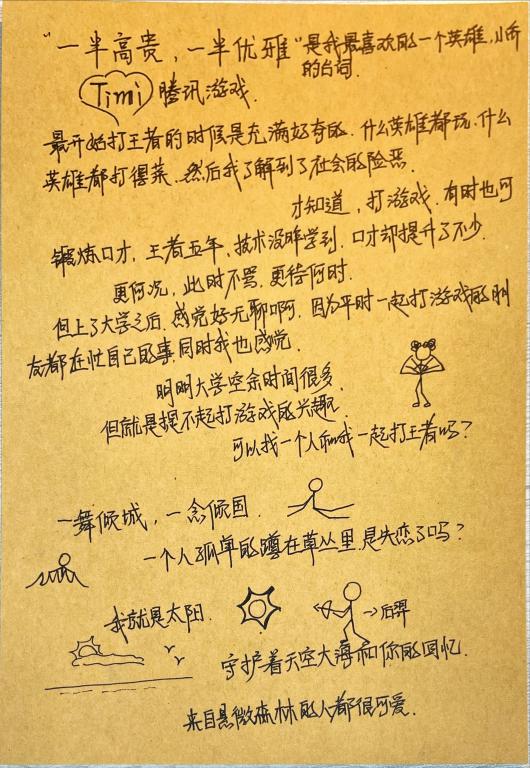 “一半高贵,一半优雅”是我最喜欢的一个英雄,小乔
的台词.
Timi 腾讯游戏.
最开始打王者的时候是充满好奇的.什么英雄都玩.什么
英雄都打得菜.然后我了解到了社会的险恶.
才知道,打游戏.有时也可
锻炼口才,王者五年,技术没咋学到.口才却提升了不少.
更何况,此时不骂,更待何时.
但上了大学之后.感觉好无聊啊.因为平时一起打游戏的朋
友都在忙自己的事.同时我也感觉.
明明大学空余时间很多.
但就是提不起打游戏的兴趣.
可以找一个人和我一起打王者吗?
一舞倾城,一念倾国.
一个人孤单的蹲在草丛里.是失恋了吗?
我就是太阳.
→后羿
守护着天空大海和你的回忆.
来自悬微森林的人都很可爱.